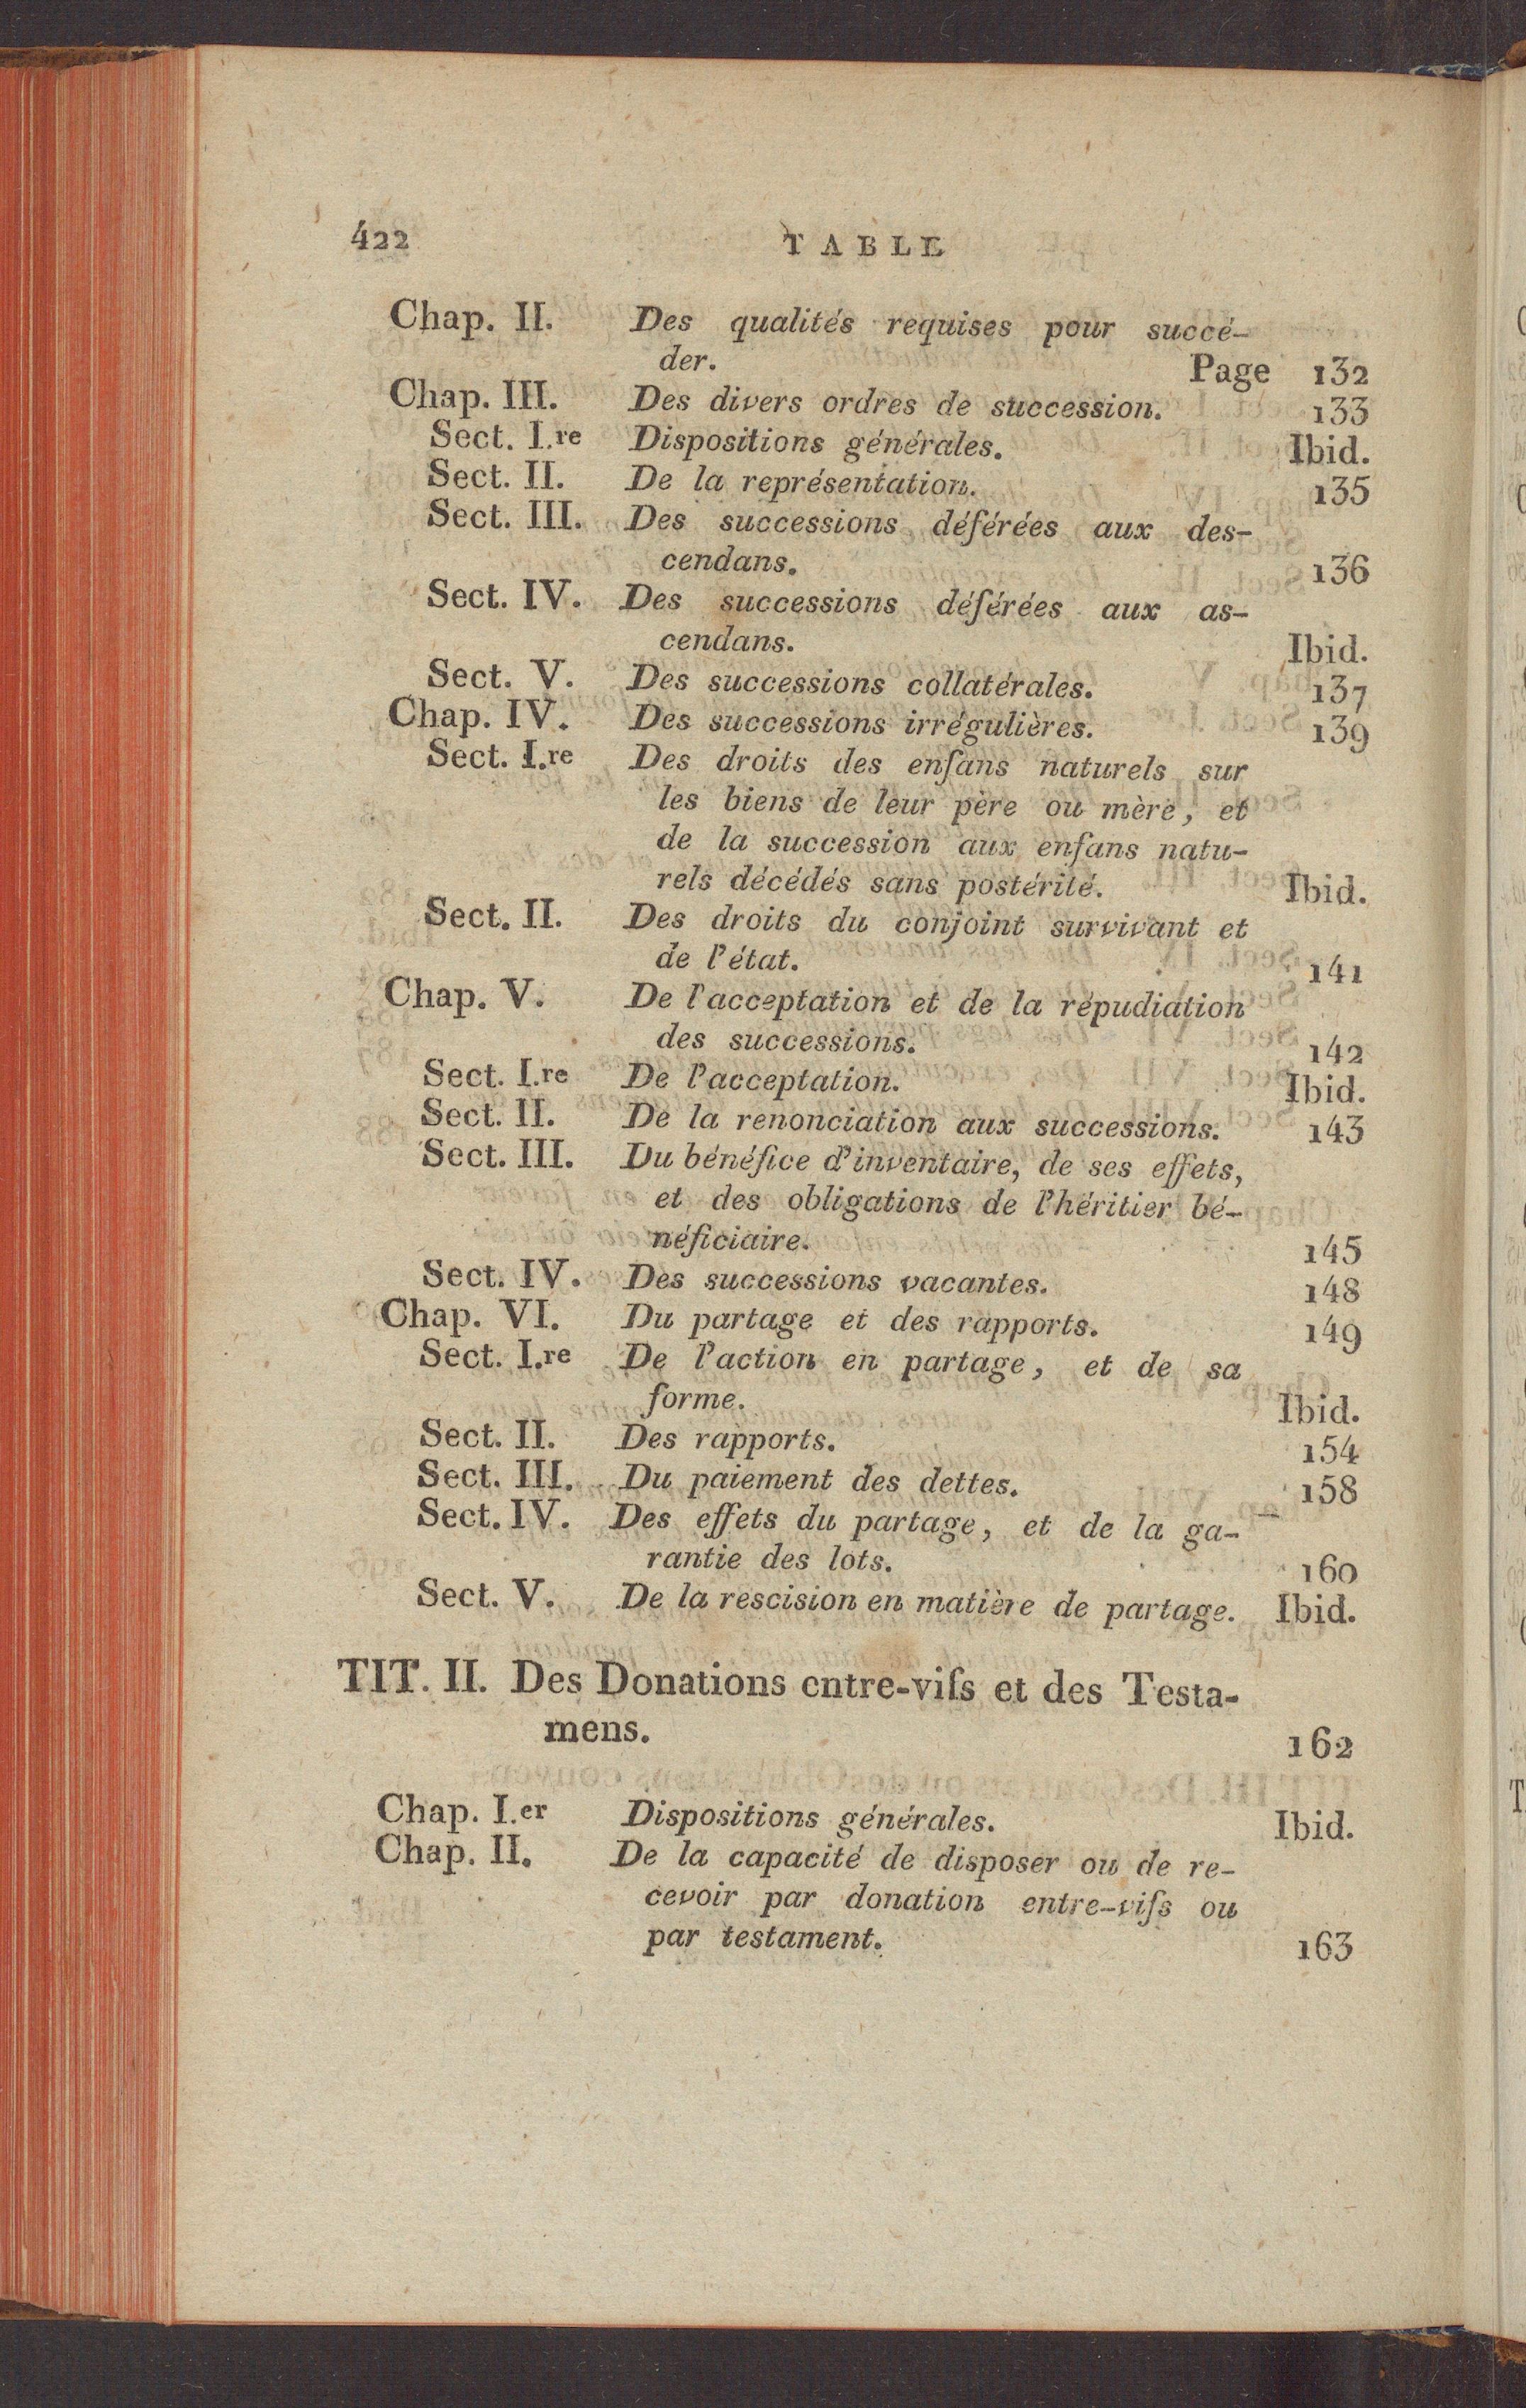 422 TABLE
Chap. II. Des qualités requises pour succé-
der. Page 132
Chap. III. Des divers ordres de succession. 133
Sect. I.re Dispositions générales. Ibid.
Sect. II. De la représentation. 135
Sect. III. Des successions déférées aux des-
cendans. 136
Sect. IV. Des successions déférées aux as-
cendans. Ibid.
Sect. V. Des successions collatérales. 137
Chap. IV. Des successions irrégulières. 139
Sect. I.re Des droits des enfans naturels sur
les biens de leur père ou mère, et
de la succession aux enfans natu-
rels décédés sans postérité. Ibid.
Sect. II. Des droits du conjoint survivant et
de l'état. 141
Chap. V. De l'acceptation et de la répudiation
des successions. 142
Sect. I.re De l'acceptation. Ibid.
Sect. II. De la renonciation aux successions. 143
Sect. III. Du bénéfice d'inventaire, de ses effets,
et des obligations de l'héritier bé-
néficiaire. 145
Sect. IV. Des successions vacantes. 148
Chap. VI. Du partage et des rapports. 149
Sect. I.re De l'action en partage, et de sa
forme. Ibid.
Sect. II. Des rapports. 154
Sect. III. Du paiement des dettes. 158
Sect. IV. Des effets du partage, et de la ga-
rantie des lots. 160
Sect. V. De la rescision en matière de partage. Ibid.
TIT. II. Des Donations entre-vifs et des Testa-
mens. 162
Chap. I.er Dispositions générales. Ibid.
Chap. II. De la capacité de disposer ou de re-
cevoir par donation entre-vifs ou
par testament. 163